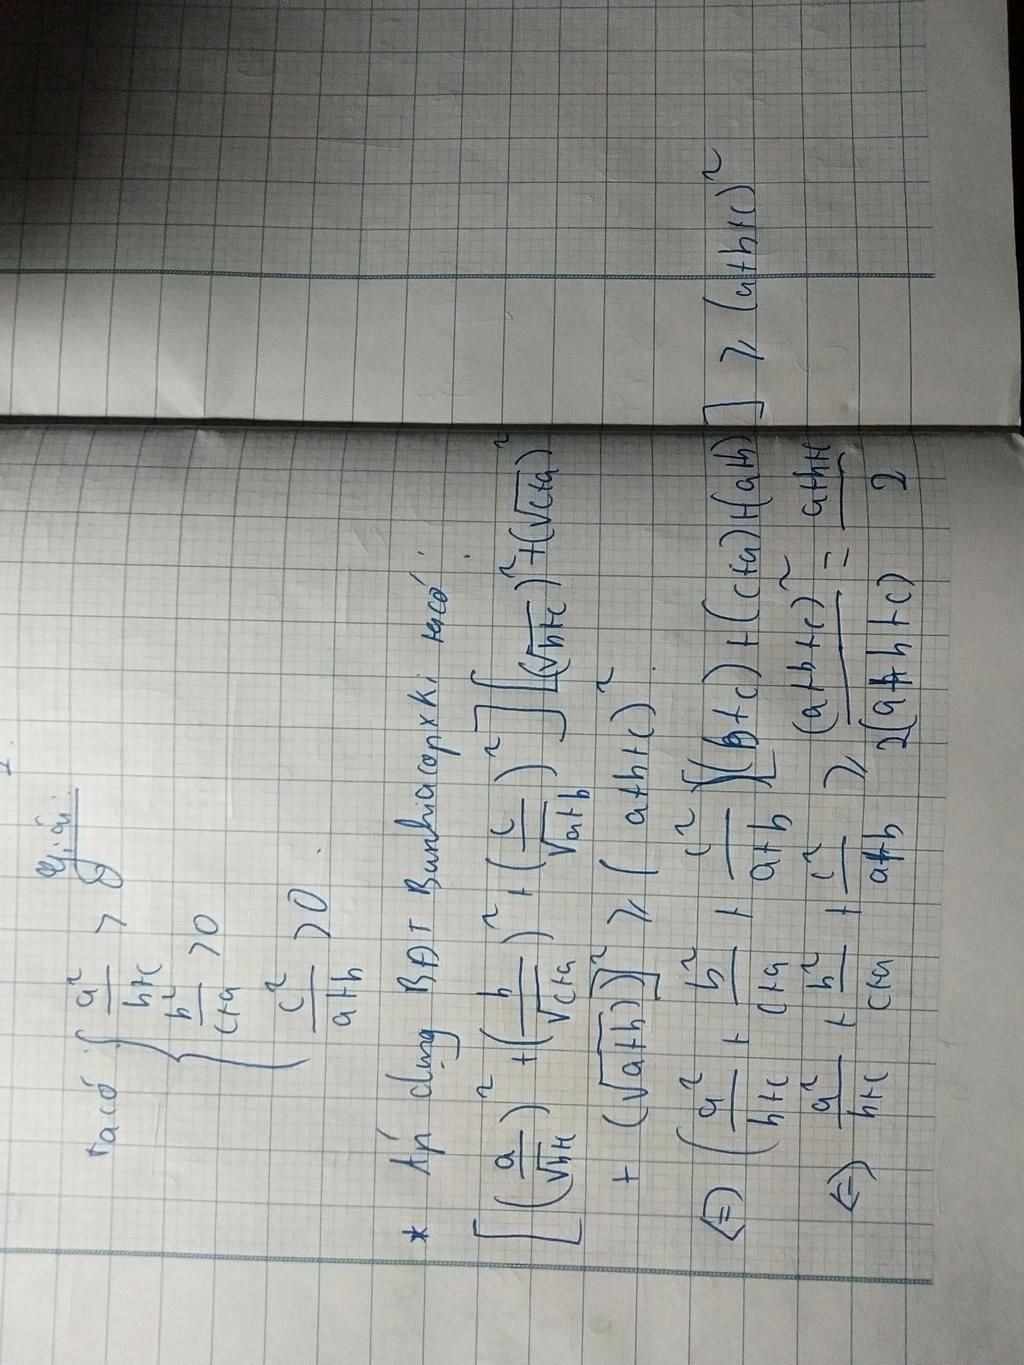 Giải
ta có { a²/(b+c) > 0
b²/(c+a) > 0
c²/(a+b) > 0
* Áp dụng BĐT Bunhiacopxki ta có:
[(a/√b+c)² + (b/√c+a)² + (c/√a+b)²][(√b+c)² + (√c+a)²
+ (√a+b)²] ≥ (a+b+c)²
<=> (a²/(b+c) + b²/(c+a) + c²/(a+b))[(b+c)+(c+a)+(a+b)] ≥ (a+b+c)²
<=> a²/(b+c) + b²/(c+a) + c²/(a+b) ≥ (a+b+c)²/2(a+b+c) = (a+b+c)/2